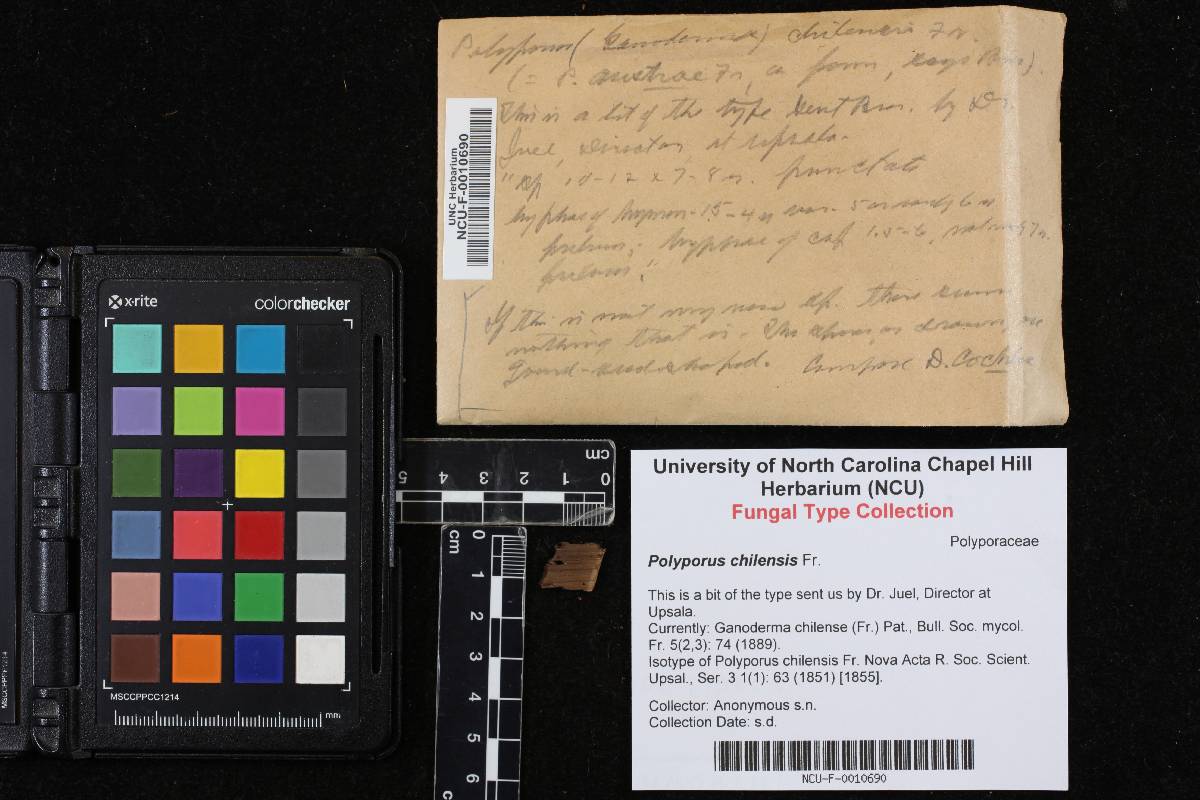 Polyporus (Ganoderma) chilensis Fr.
(= P. australe Fr., a form, says Bres.)
This is a bit of the type sent Bres. by Dr.
Juel, Director at Upsala.
"Sp. 10-12 x 7-8 µ. punctate
hyphae of hymen. 1.5-4 µ
hyphae of cap 1.5-6,
If this is not very near Sp. there seems
nothing that is. The spores, as drawn, are
gourd-seed shaped. Compare D. Cochlear
UNC Herbarium
NCU-F-0010690
x-rite
colorchecker
MSCCPPCC1214
mm
MSCCPPCC1214
cm
5 4 3 2 1 0
cm
0
1
2
3
4
5
6
University of North Carolina Chapel Hill
Herbarium (NCU)
Fungal Type Collection
Polyporaceae
Polyporus chilensis Fr.
This is a bit of the type sent us by Dr. Juel, Director at
Upsala.
Currently: Ganoderma chilense (Fr.) Pat., Bull. Soc. mycol.
Fr. 5(2,3): 74 (1889).
Isotype of Polyporus chilensis Fr. Nova Acta R. Soc. Scient.
Upsal., Ser. 3 1(1): 63 (1851) [1855].
Collector: Anonymous s.n.
Collection Date: s.d.
NCU-F-0010690